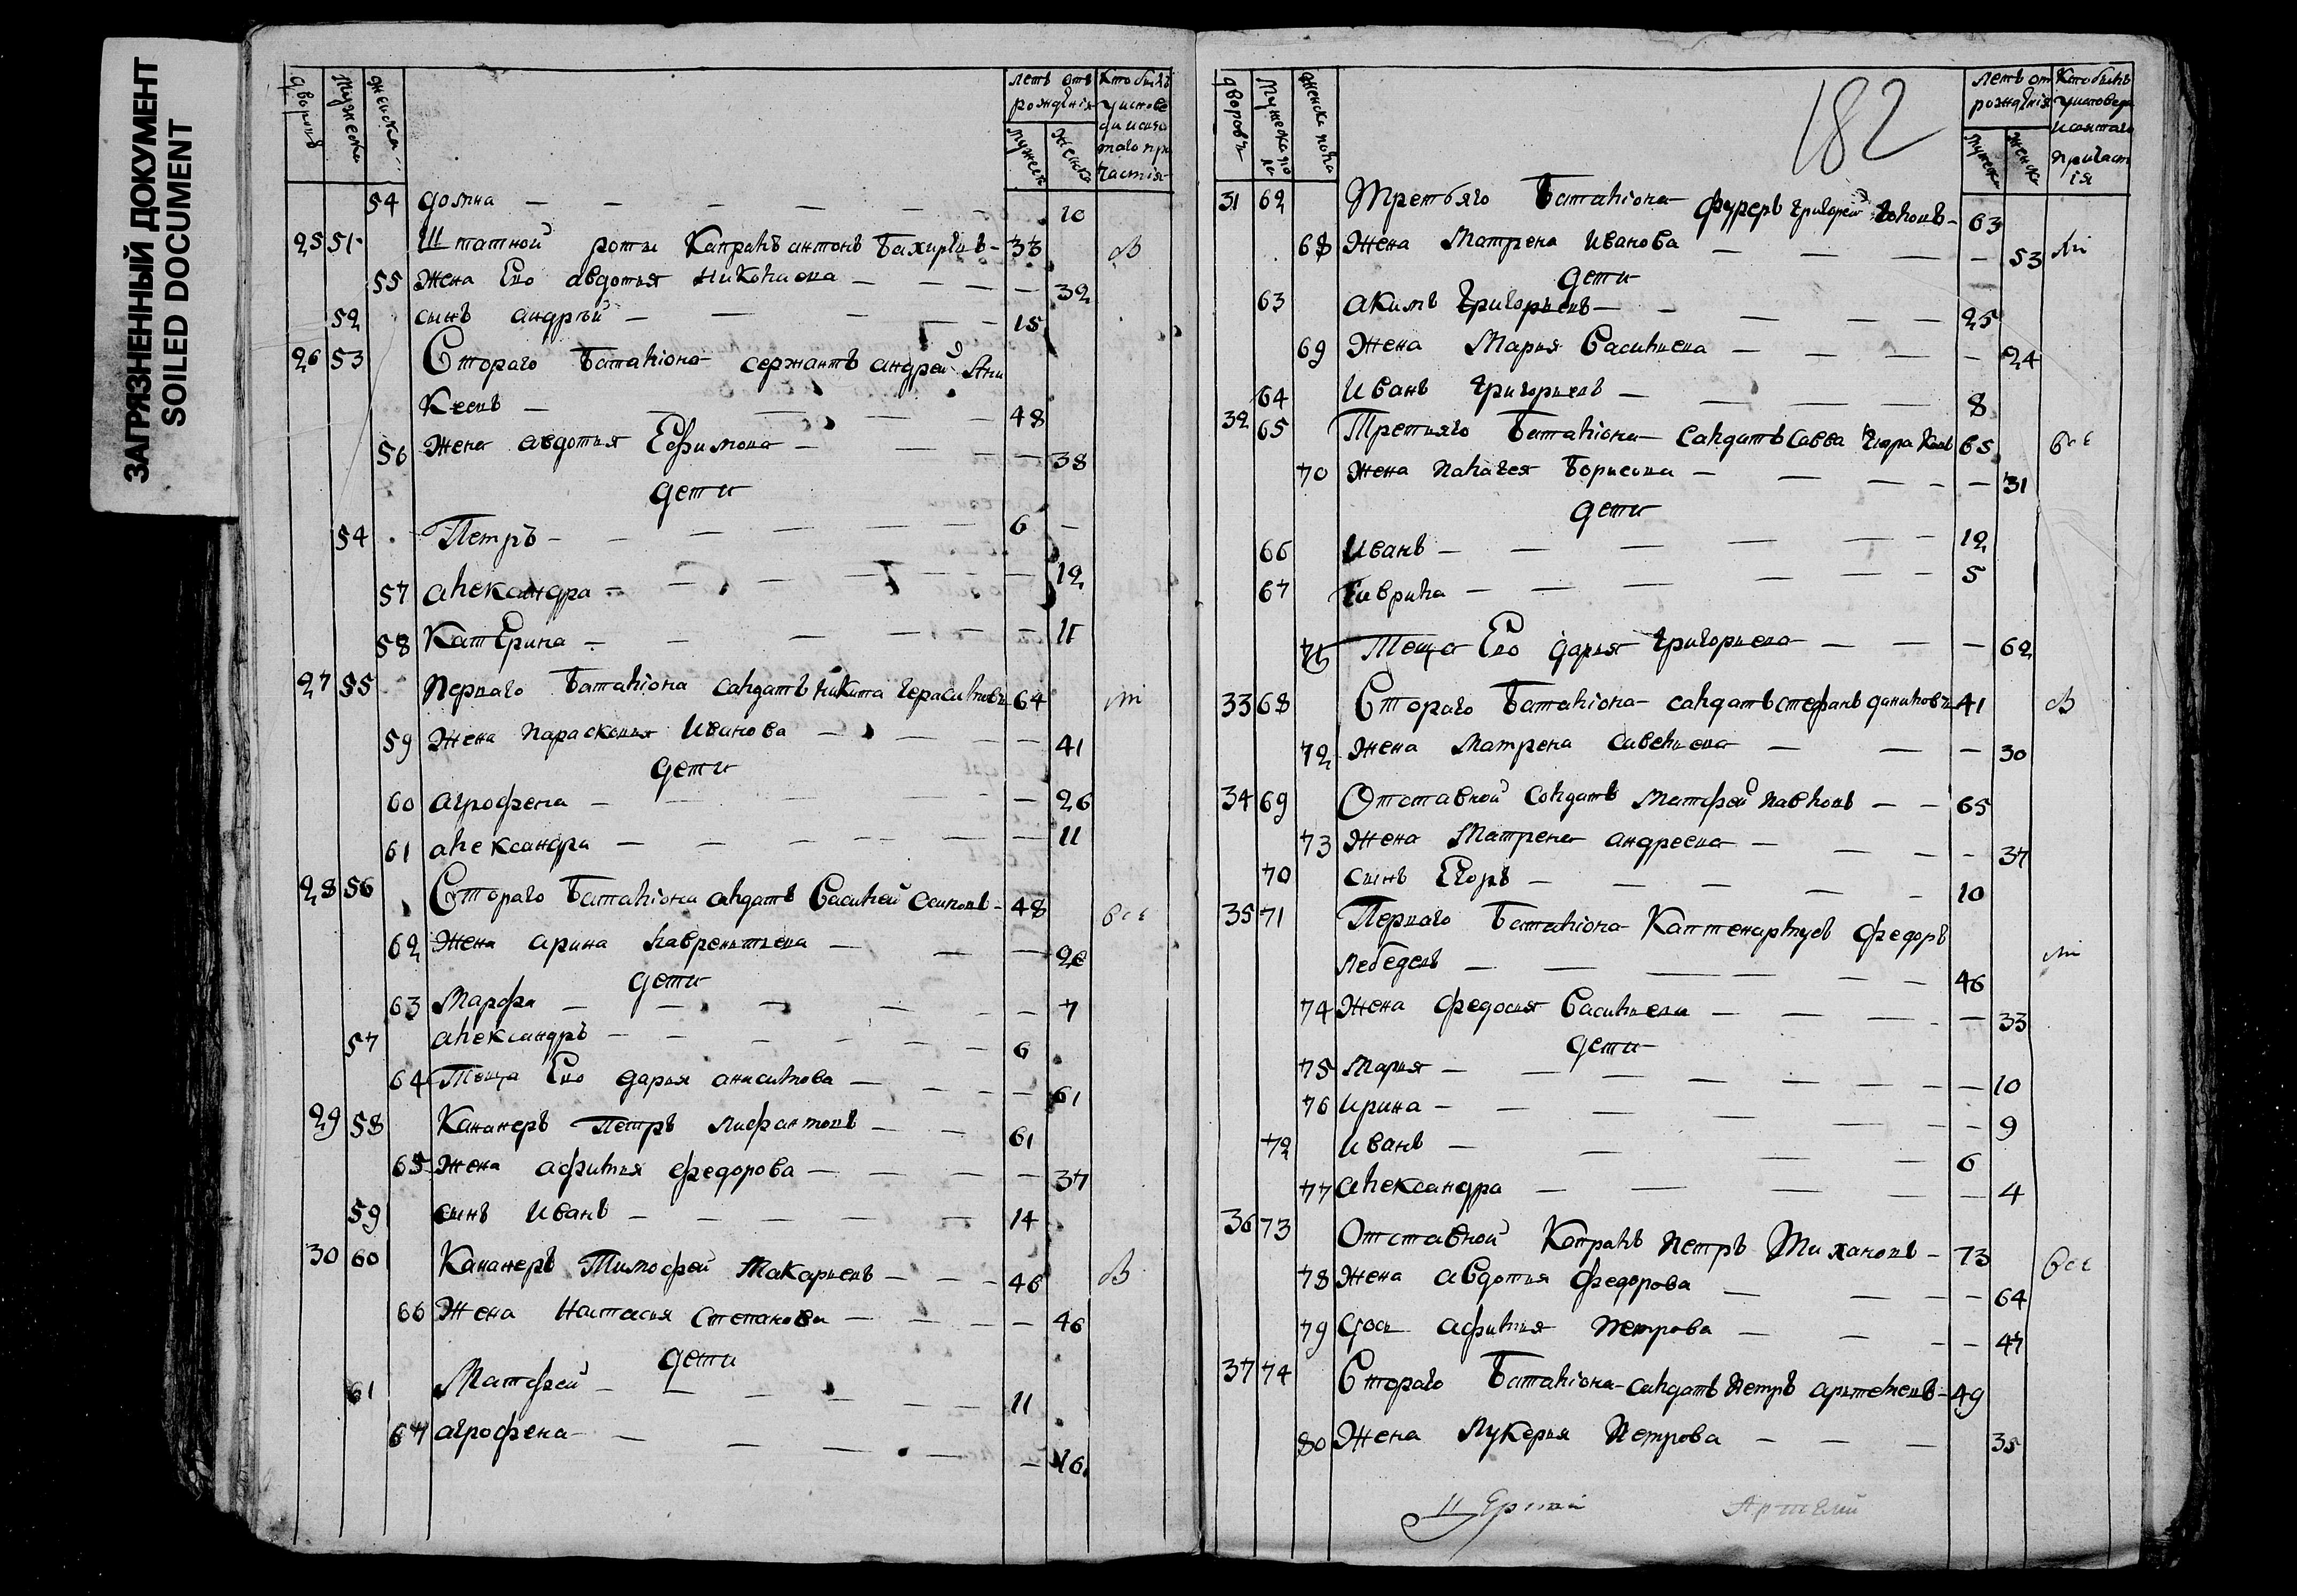 ЗАГРЯЗНЕННЫЙ ДОКУМЕНТ
SOILED DOCUMENT
дворовъ мужеска женска летъ отъ рожденія мужеска женска Кто былъ у исповеди и святаго причастія
54 домна — 10
25 51 Штатной роты Капралъ антонъ — 33
55 Жена Ево авдотья николаева — 32
52 сынъ андрѣй — 15
26 53 Втораго Баталіона сержантъ андрей Ани
кеевъ — 48
56 Жена авдотья Ефимова — 38
дети
54 Петръ — 6
57 александра — 12
58 КатЕрина — 11
27 55 перваго Баталіона салдатъ никита герасимовъ 64
59 Жена параскевья Иванова — 41
дети
60 агрофена — 26
61 александра — 11
28 56 Втораго Баталіона салдатъ Василей — 48 все
62 Жена арина лаврентьева —
дети
63 Марфа — 7
57 александръ — 6
64 Теща Ево дарья анисимова — 61
29 58 Кананеръ Петръ — 61
65 Жена афимья федорова — 37
59 сынъ Иванъ — 14
30 60 Кананеръ Тимофей Макарьевъ — 46
66 Жена Настасья Степанова — 46
дети
61 Матфей — 11
67 агрофена — 16
182
дворовъ мужеска пола женска пола летъ от рожденія мужеска женска Кто былъ у исповеди и святаго причастія
31 62 Третьяго Баталіона фуреръ григорей — 63
68 Жена Матрена Иванова — 53
дети
63 акимъ григорьевъ — 25
69 Жена Марья Васильева — 24
64 Иванъ григорьевъ — 8
32 65 Третьяго Баталіона Салдатъ Савва 65 все
70 Жена палагея Борисова — 31
дети
66 Иванъ — 12
67 Гаврила — 5
71 Теща Ево дарья григорьева — 62
33 68 Втораго Баталіона салдатъ стефанъ даниловъ 41
72 Жена матрена савельева — 30
34 69 Отставной Солдатъ Матфей павловъ — 65
73 Жена Матрена андреева — 37
70 сынъ Егоръ — 10
35 71 Перваго Баталіона Каптенармусъ федоръ
лебедевъ — 46
74 Жена федосья Васильева — 33
дети
75 Марья — 10
76 Ирина — 9
72 Иванъ — 6
77 александра — 4
36 73 Отставной Капралъ петръ — 73 все
78 Жена авдотья федорова — 64
79 дочь афимья петрова — 47
37 74 Втораго Баталіона салдатъ петръ артемьевъ — 49
80 Жена Лукерья Петрова — 35